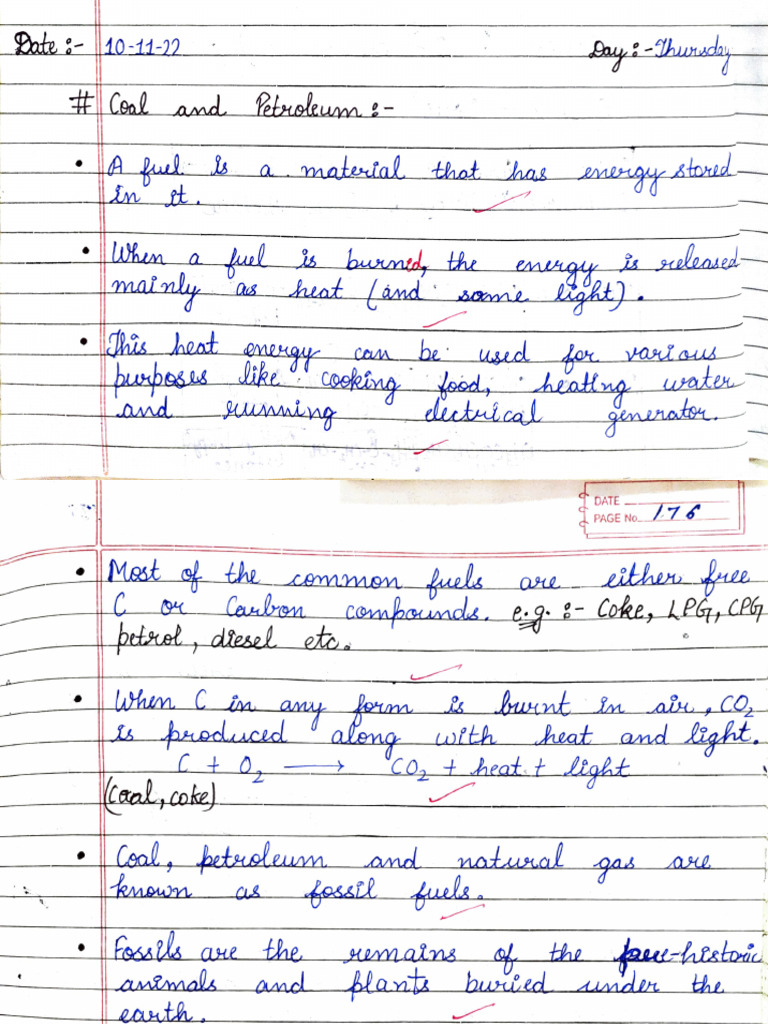 Date :- 10-11-22 Day :- Thursday
# Coal and Petroleum :-
• A fuel is a material that has energy stored
in it.
• When a fuel is burned, the energy is released
mainly as heat (and some light).
• This heat energy can be used for various
purposes like cooking food, heating water
and running electrical generator.
DATE
PAGE No. 176
• Most of the common fuels are either free
C or Carbon compounds. e.g. :- Coke, LPG, CPG
petrol, diesel etc.
• When C in any form is burnt in air, CO₂
is produced along with heat and light.
C + O₂ ⟶ CO₂ + heat + light
(Coal, coke)
• Coal, petroleum and natural gas are
known as fossil fuels.
• Fossils are the remains of the pre-historic
animals and plants buried under the
earth.